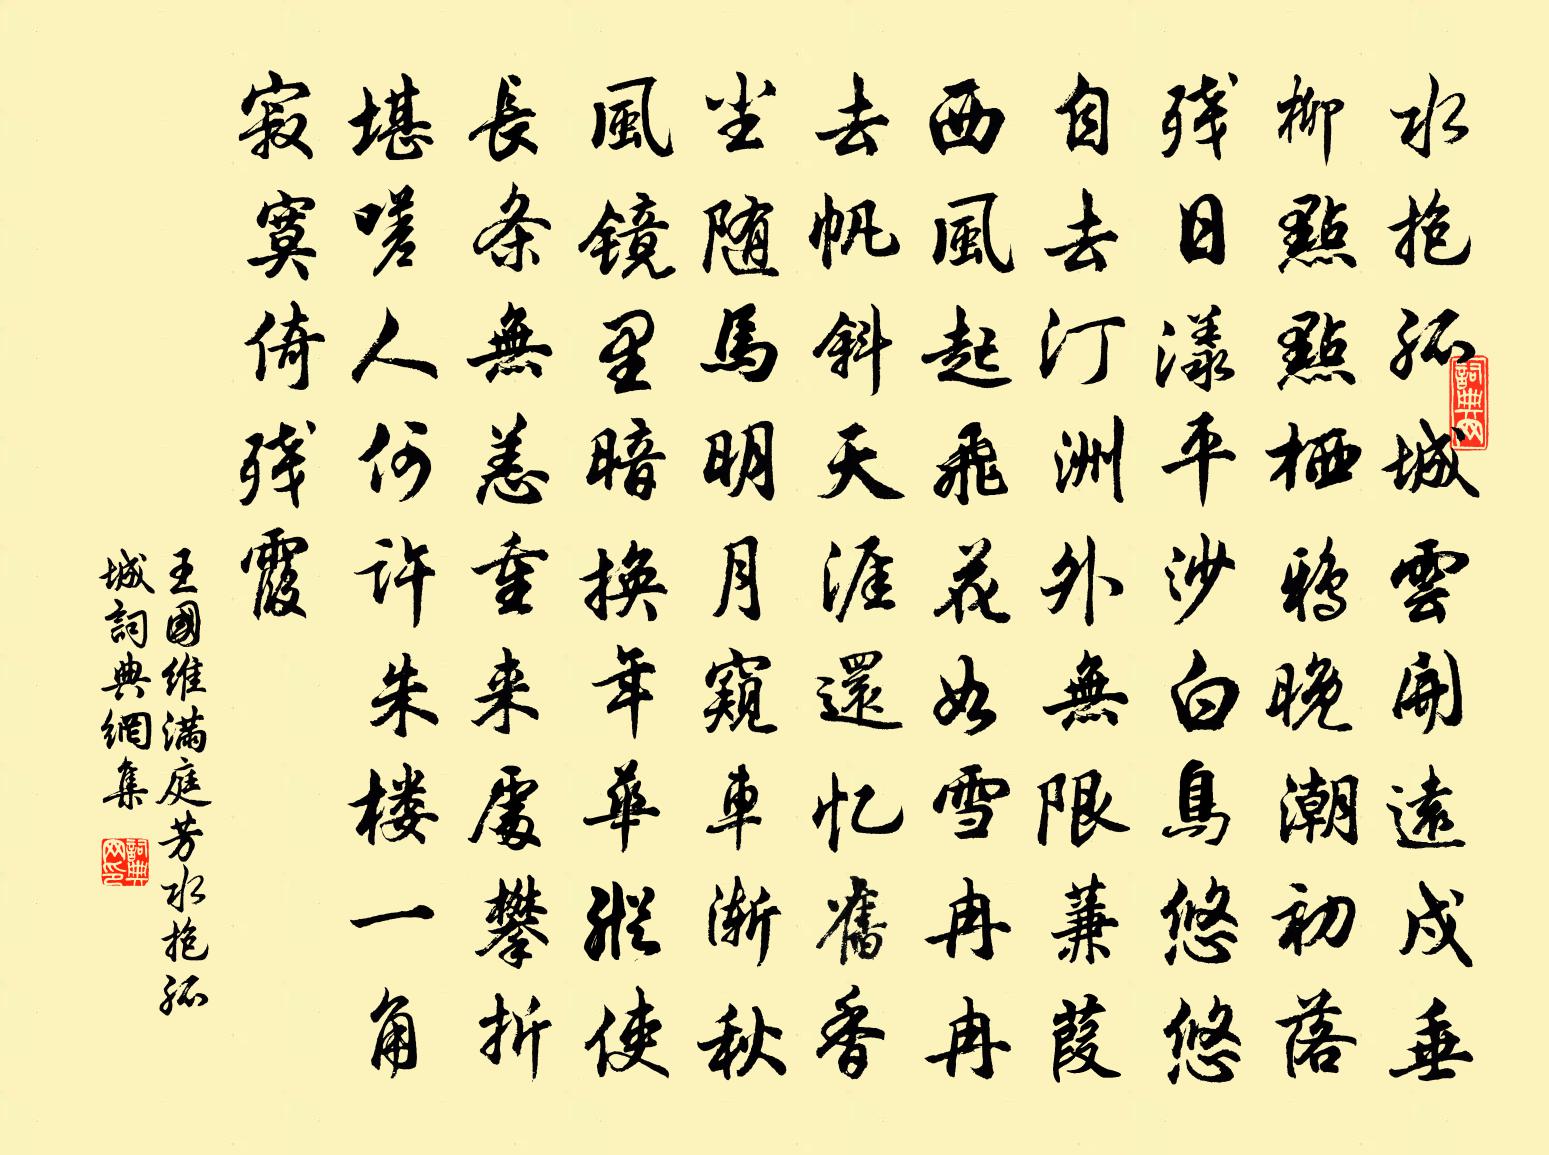 水抱孤城雲開遠戍垂
柳點點栖鴉晚潮初落
残日漾平沙白鳥悠悠
自去汀洲外無限蒹葭
西風起飛花如雪冉冉
去帆斜天涯還忆舊香
尘随馬明月窺車漸秋
風镜里暗換年華縱使
長条無恙重来處攀折
堪嗟人何許朱楼一角
寂寞倚残霞
王國維满庭芳水抱孤
城詞典網集
詞典网
詞典网印